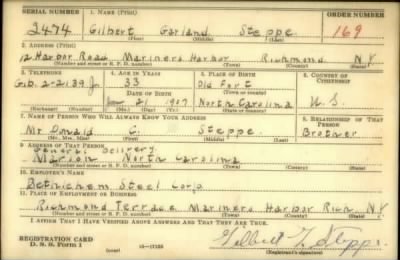 SERIAL NUMBER 1. NAME (Print) ORDER NUMBER
2474 Gilbert Garland Steppe 169
(First) (Middle) (Last)
2. ADDRESS (Print)
12 Harbor Road Mariners Harbor Richmond N.Y
(Number and street or R. F. D. number) (Town) (County) (State)
3. TELEPHONE 4. AGE IN YEARS 5. PLACE OF BIRTH 6. COUNTRY OF CITIZENSHIP
Gib. 2-2139 33 Old Fort
DATE OF BIRTH (Town or county)
21 1907 North Carolina U. S.
(Exchange) (Number) (Mo.) (Day) (Yr.) (State or country)
7. NAME OF PERSON WHO WILL ALWAYS KNOW YOUR ADDRESS 8. RELATIONSHIP OF THAT PERSON
Mr Donald C. Steppe Brother
(Mr., Mrs., Miss) (First) (Middle) (Last)
9. ADDRESS OF THAT PERSON
General Delivery
Marion North Carolina
(Number and street or R. F. D. number) (Town) (County) (State)
10. EMPLOYER'S NAME
Bethlehem Steel Corp.
11. PLACE OF EMPLOYMENT OR BUSINESS
Richmond Terrace Mariners Harbor Rich. N.Y
(Number and street or R. F. D. number) (Town) (County) (State)
I AFFIRM THAT I HAVE VERIFIED ABOVE ANSWERS AND THAT THEY ARE TRUE.
REGISTRATION CARD
D. S. S. Form 1 Gilbert G. Steppe